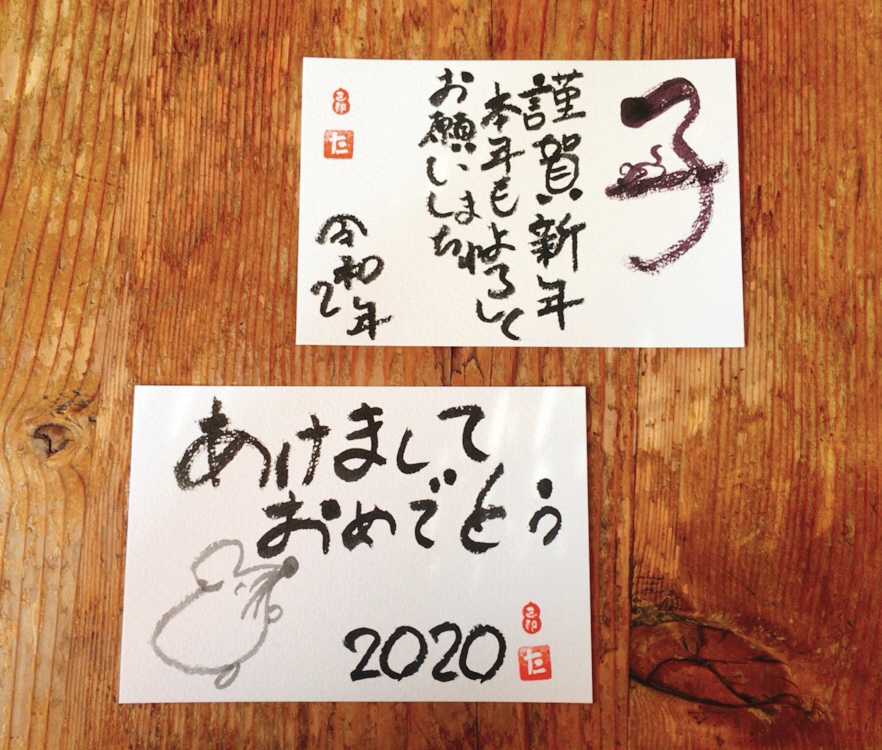 子
謹賀新年
本年もよろしく
お願いしまちゅ
令和2年
た
あけまして
おめでとう
2020
た